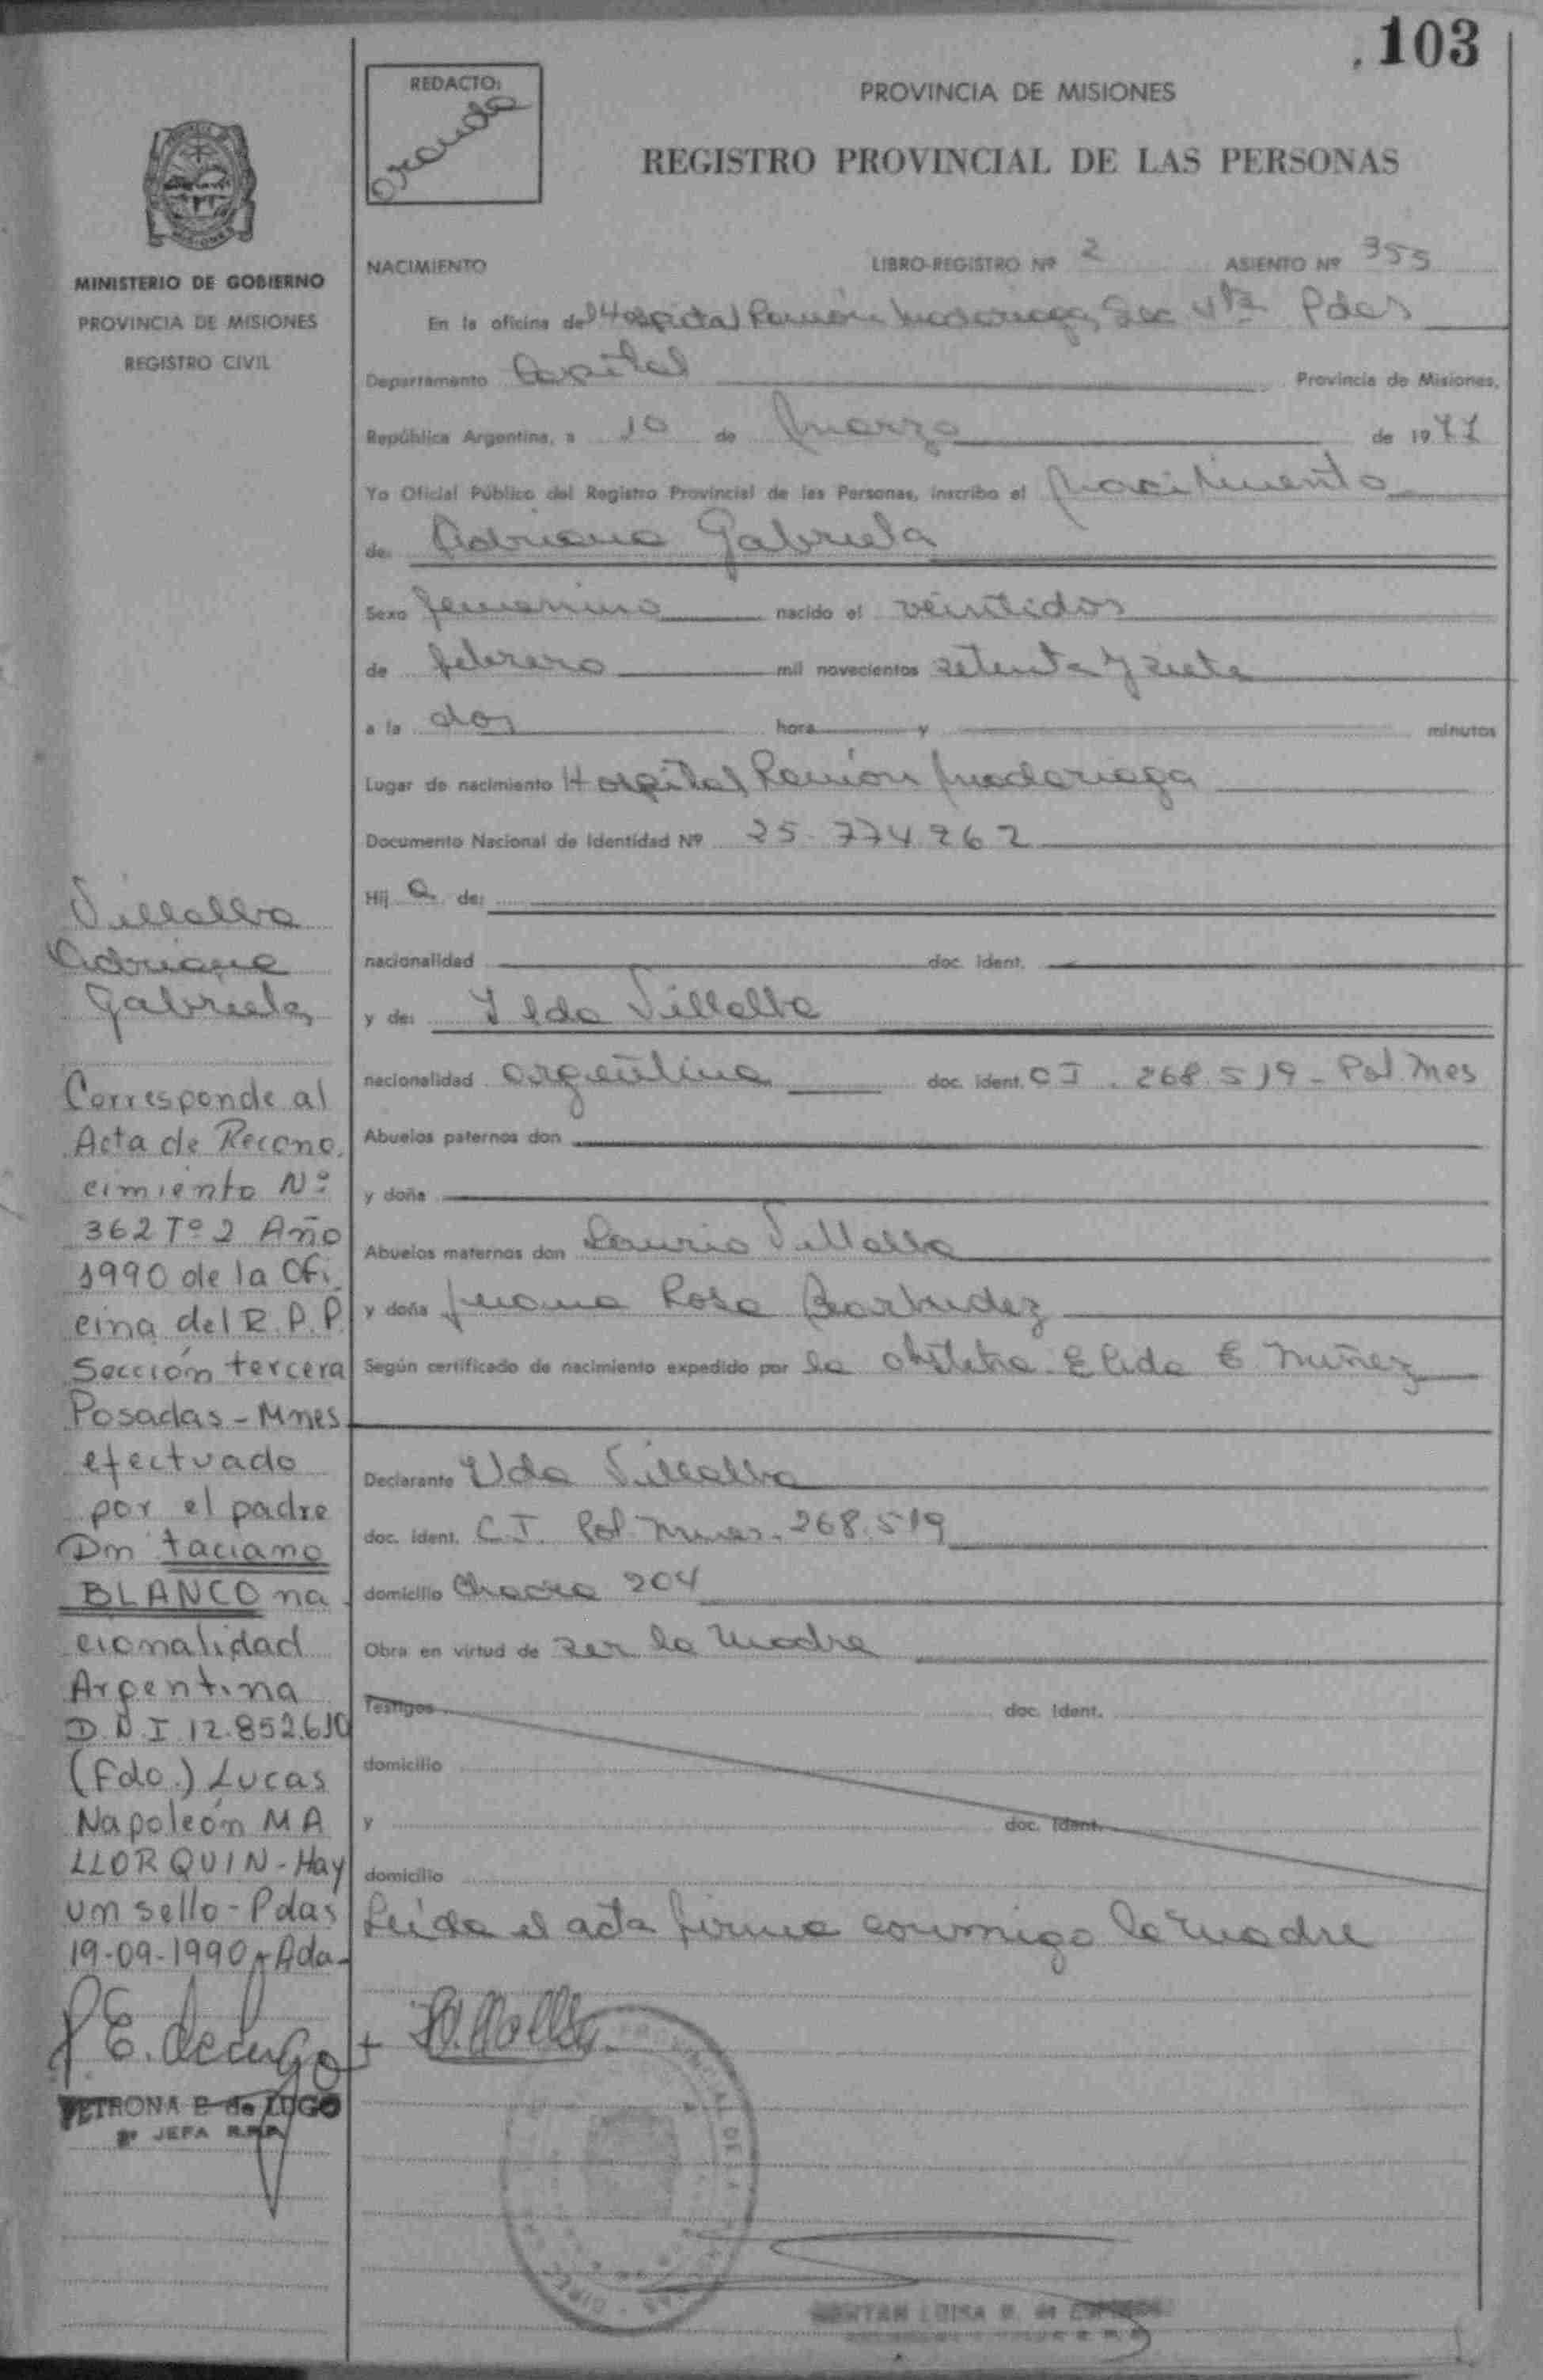 103
REDACTO:
Aranda
PROVINCIA DE MISIONES
REGISTRO PROVINCIAL DE LAS PERSONAS
MINISTERIO DE GOBIERNO
PROVINCIA DE MISIONES
REGISTRO CIVIL
NACIMIENTO LIBRO-REGISTRO Nº 2 ASIENTO Nº 355
En la oficina del Hospital Ramón Madariaga, Sec 4ta Pdas
Departamento Capital Provincia de Misiones,
República Argentina, a 10 de marzo de 1977
Yo Oficial Público del Registro Provincial de las Personas, inscribo el nacimiento
de: Adriana Gabriela
Sexo femenino nacido el veintidos
de febrero mil novecientos setenta y siete
a la dos hora y minutos
Lugar de nacimiento Hospital Ramón Madariaga
Documento Nacional de Identidad Nº 25.774.262
Hij a de:
nacionalidad doc. ident.
y de: Ilda Villalba
nacionalidad argentina doc. ident. CI. 268.519 - Pol. Mes
Abuelos paternos don
y doña
Abuelos maternos don Villalba
y doña Juana Rosa
Según certificado de nacimiento expedido por la obstetra Elida E. Nuñez
Declarante Ilda Villalba
doc. ident. C.I. Pol. 268.519
domicilio Chacra 204
Obra en virtud de ser la madre
Testigos doc. ident.
domicilio
y doc. ident.
domicilio
Leida el acta firma conmigo la madre
Villalba
Adriana
Gabriela
Corresponde al
Acta de Recono.
cimiento Nº
362 Tº 2 Año
1990 de la Ofi
cina del R.P.P.
Sección tercera
Posadas - Mnes
efectuado
por el padre
Dn taciano
BLANCO na
cionalidad
Argentina
D.N.I 12.852.610
(Fdo.) Lucas
Napoleón MA
LLORQUIN - Hay
un sello - Pdas
19-09-1990 - Ada-
PETRONA E de LUGO
JEFA R.P.P.